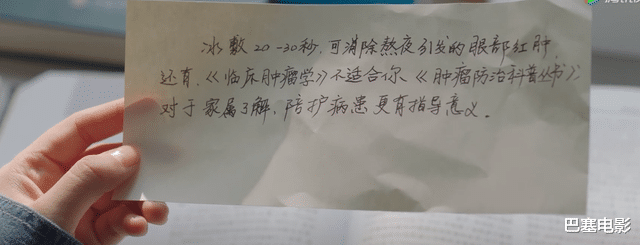 冰敷20-30秒,可消除熬夜引发的眼部红肿
还有,《临床肿瘤学》不适合你、《肿瘤防治科普丛书》
对于家属了解、陪护病患更有指导意义。
巴塞电影